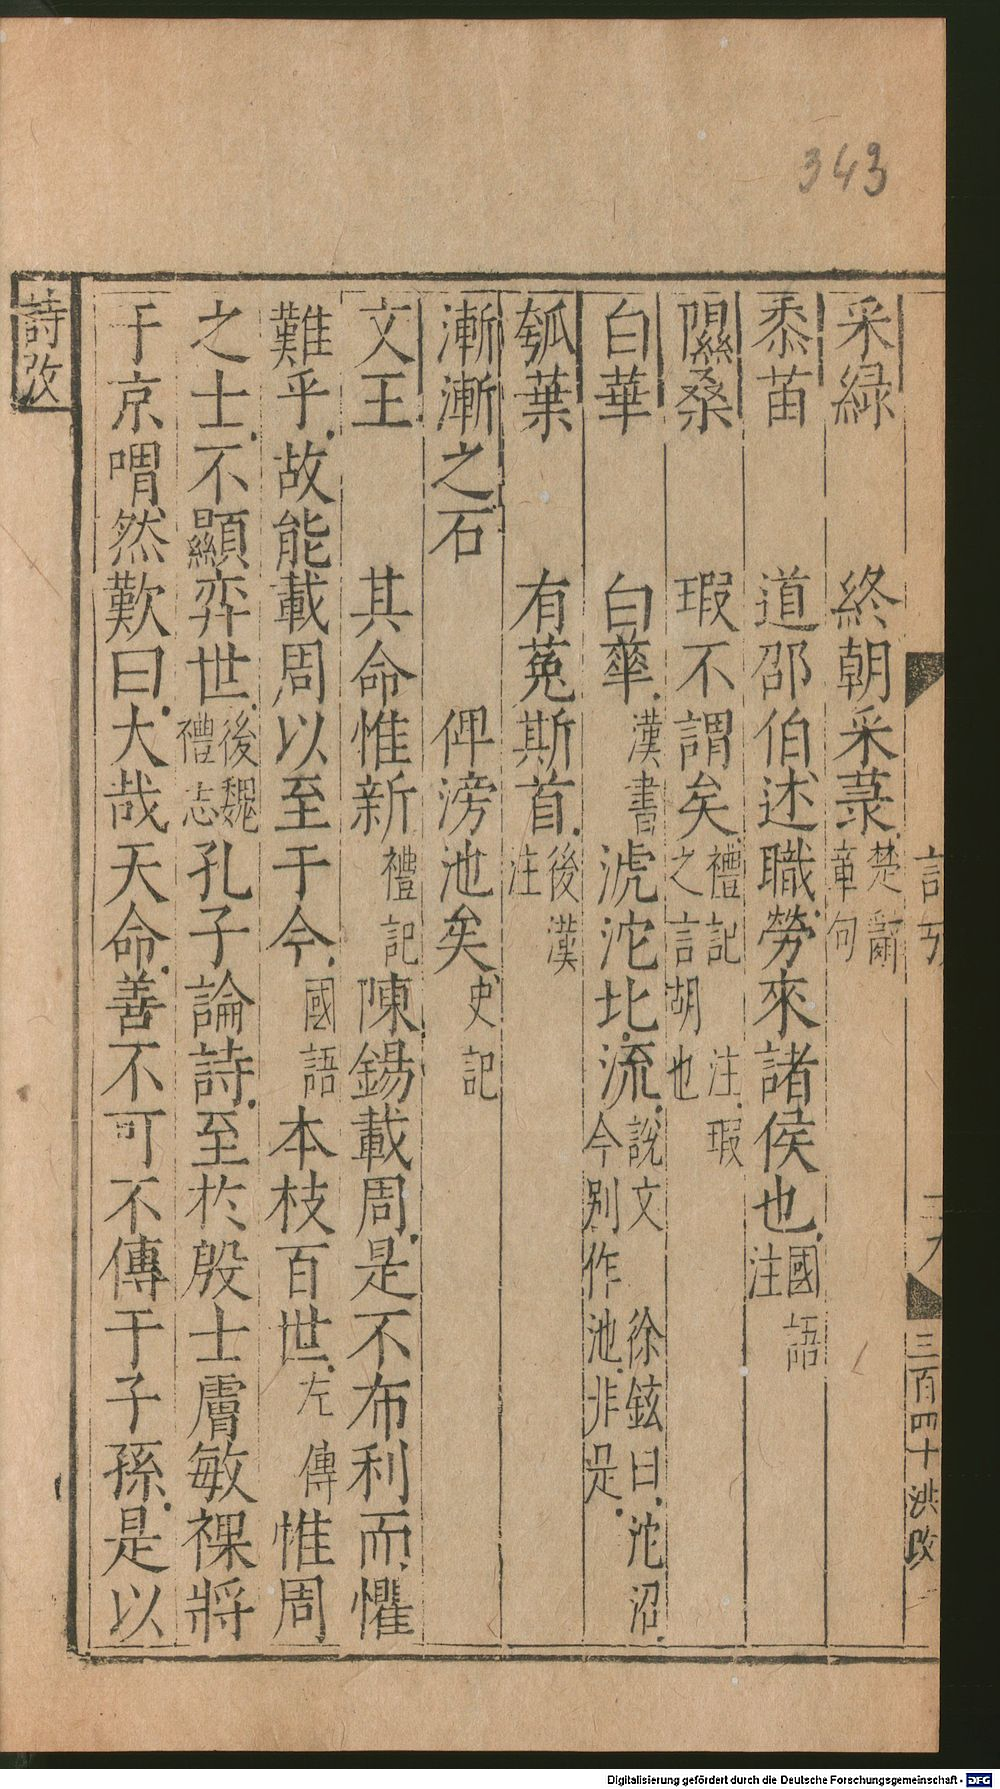 343
采綠 終朝采菉楚辭章句
黍苗 道邵伯述職勞來諸侯也國語注
隰桑 瑕不謂矣禮記注瑕之言胡也
白華 白華漢書滮沱北流說文徐鉉曰沱沼今別作池非是
瓠葉 有菟斯首後漢注
漸漸之石 俾滂池矣史記
文王 其命惟新禮記陳錫載周是不布利而懼
難乎故能載周以至于今國語本枝百世左傳惟周
之士不顯弈世後魏禮志孔子論詩至於殷士膚敏祼將
于京喟然歎曰大哉天命善不可不傳于子孫是以
詩攷
三百四十 洪
Digitalisierung gefördert durch die Deutsche Forschungsgemeinschaft - DFG